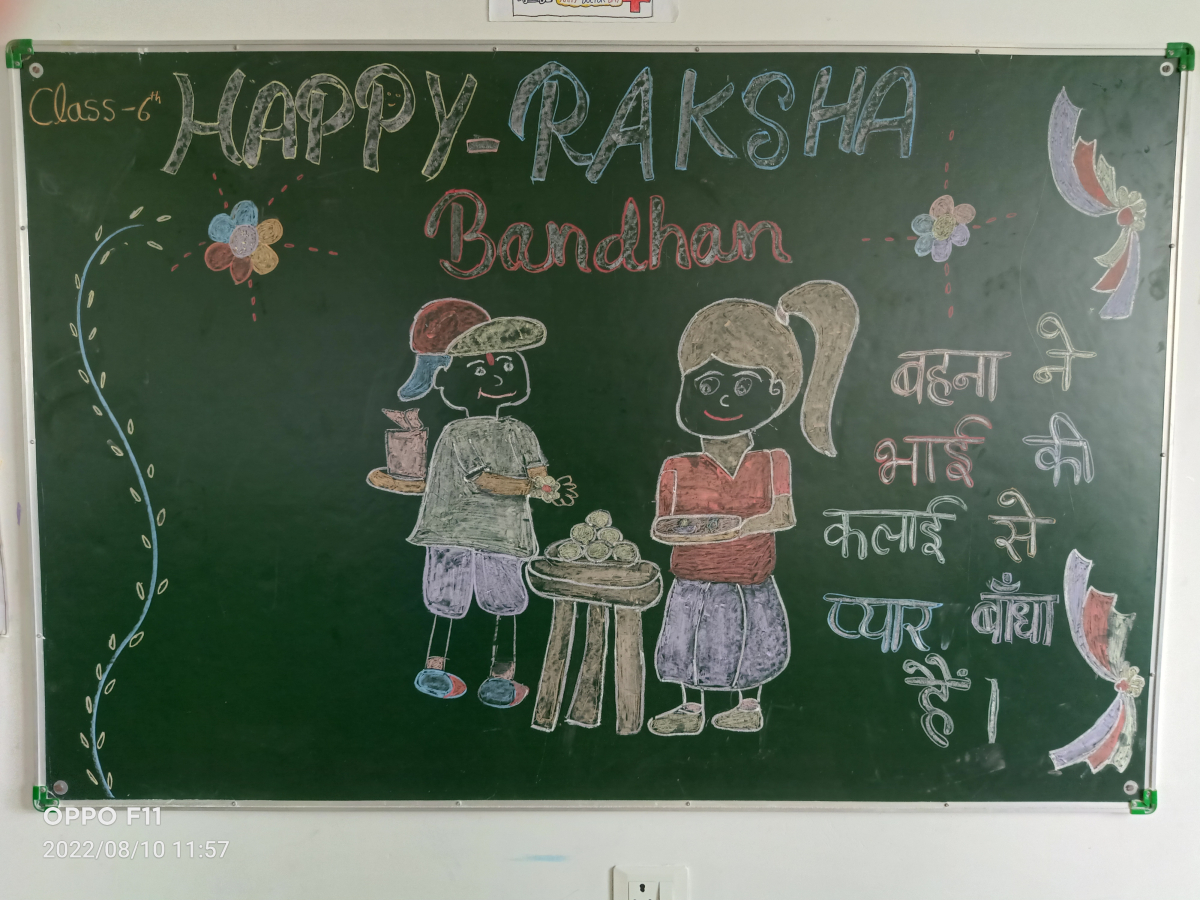 Class-6th
HAPPY-RAKSHA
Bandhan
बहना ने
भाई की
कलाई से
प्यार बाँधा
हैं।
OPPO F11
2022/08/10 11:57